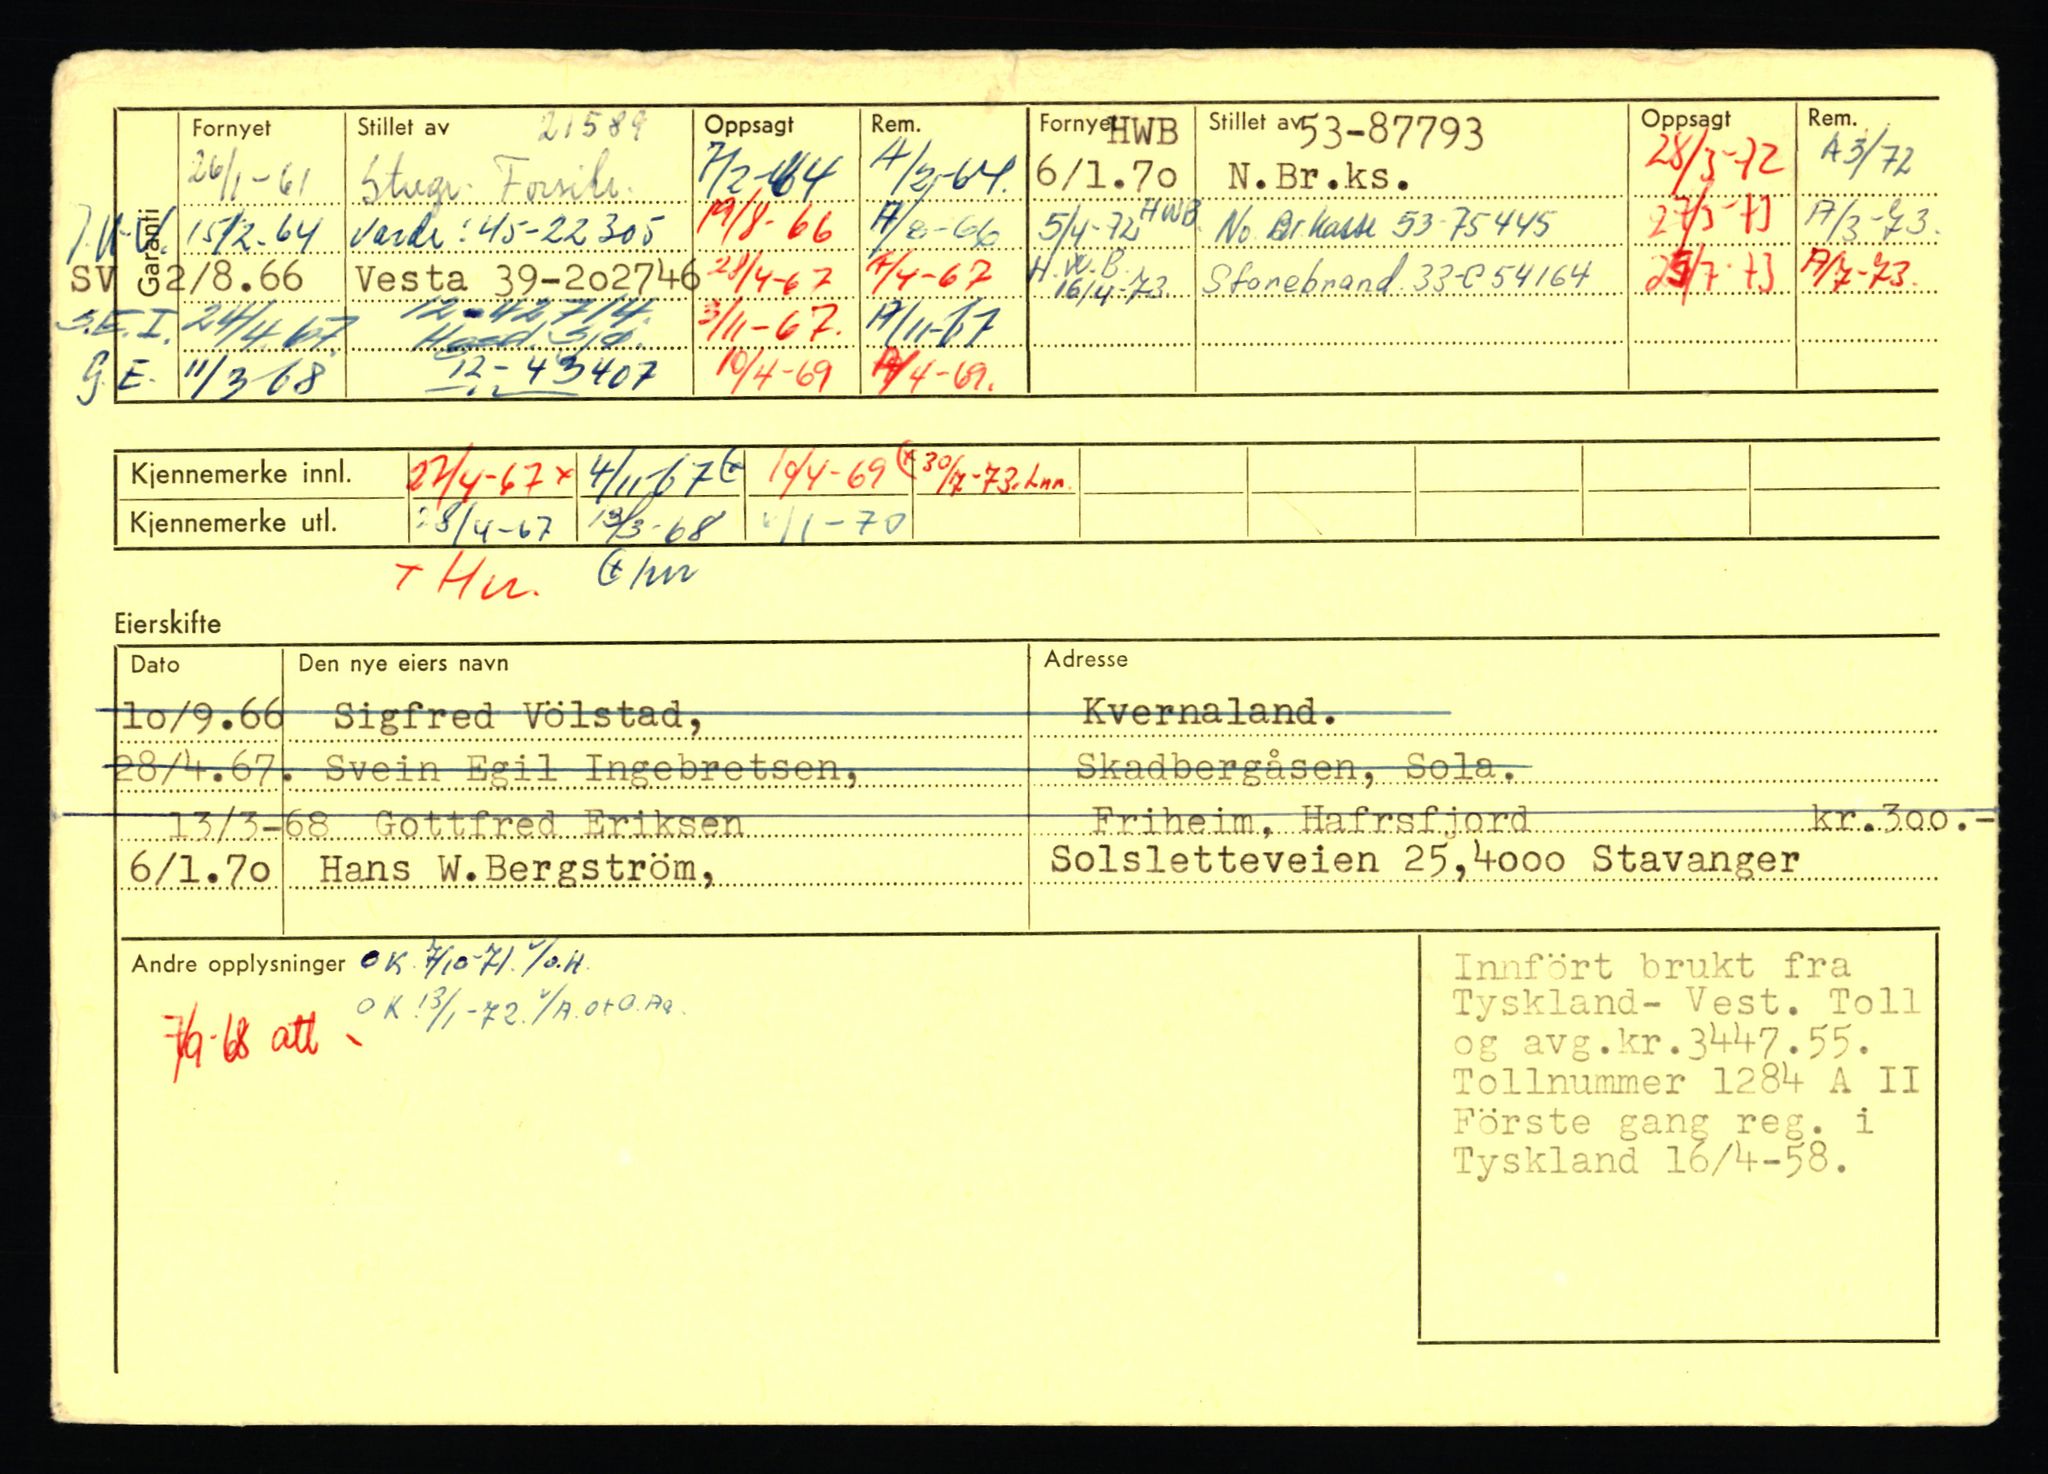 Fornyet Stillet av 21589 Oppsagt Rem. Fornyet HWB Stillet av 53-87793 Oppsagt Rem.
Garanti
26/1-61 7/2-64 A/2-64. 6/1.7o N.Br.ks. 28/3-72 A 3/72
15/2-64 Varde: 45-22305 19/8-66 A/8-66 5/4-72 HWB. No. Brkasse 53-75445 27/3-73 A/3-73.
SV 2/8.66 Vesta 39-2o2746 28/4-67 A/4-67 H.W.B. 16/4-73. Storebrand 33-C54164 25/7-73 A/7-73.
S.E.I. 24/4-67. 12-42714. 3/11-67. A/11-67
G.E. 11/3-68 12-43407 10/4-69 A/4-69.
Kjennemerke innl. 27/4-67 x 4/11-67 (x 10/4-69 (x 30/7-73. Lnn.
Kjennemerke utl. 28/4-67 13/3-68 6/1-70
x Hn. (x hn
Eierskifte
Dato Den nye eiers navn Adresse
1o/9.66 Sigfred Völstad, Kvernaland.
28/4.67. Svein Egil Ingebretsen, Skadbergåsen, Sola.
13/3-68 Gottfred Eriksen Friheim, Hafrsfjord kr.3oo.-
6/1.7o Hans W.Bergström, Solsletteveien 25,4ooo Stavanger
Andre opplysninger OK 7/10-71. v/O.H.
OK 13/1-72. v/A.
7/9-68 att
Innfört brukt fra
Tyskland- Vest. Toll
og avg.kr.3447.55.
Tollnummer 1284 A II
Förste gang reg. i
Tyskland 16/4-58.